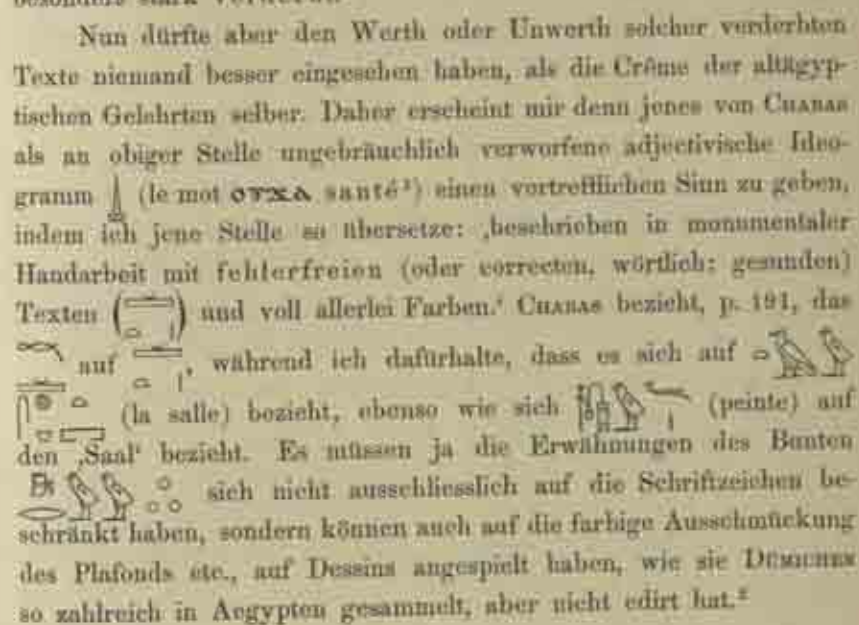 Nun dürfte aber den Werth oder Unwerth solcher verderbten
Texte niemand besser eingesehen haben, als die Crême der altägyp-
tischen Gelehrten selber. Daher erscheint mir denn jenes von CHABAS
als an obiger Stelle ungebräuchlich verworfene adjectivische Ideo-
gramm (le mot ⲟⲩϫⲁ santé¹) einen vortrefflichen Sinn zu geben,
indem ich jene Stelle so übersetze: ‚beschrieben in monumentaler
Handarbeit mit fehlerfreien (oder correcten, wörtlich: gesunden)
Texten ( ) und voll allerlei Farben.‘ CHABAS bezieht, p. 191, das
auf , während ich dafürhalte, dass es sich auf
(la salle) bezieht, ebenso wie sich (peinte) auf
den ‚Saal‘ bezieht. Es müssen ja die Erwähnungen des Bunten
sich nicht ausschliesslich auf die Schriftzeichen be-
schränkt haben, sondern können auch auf die farbige Ausschmückung
des Plafonds etc., auf Dessins angespielt haben, wie sie DÜMICHEN
so zahlreich in Aegypten gesammelt, aber nicht edirt hat.²